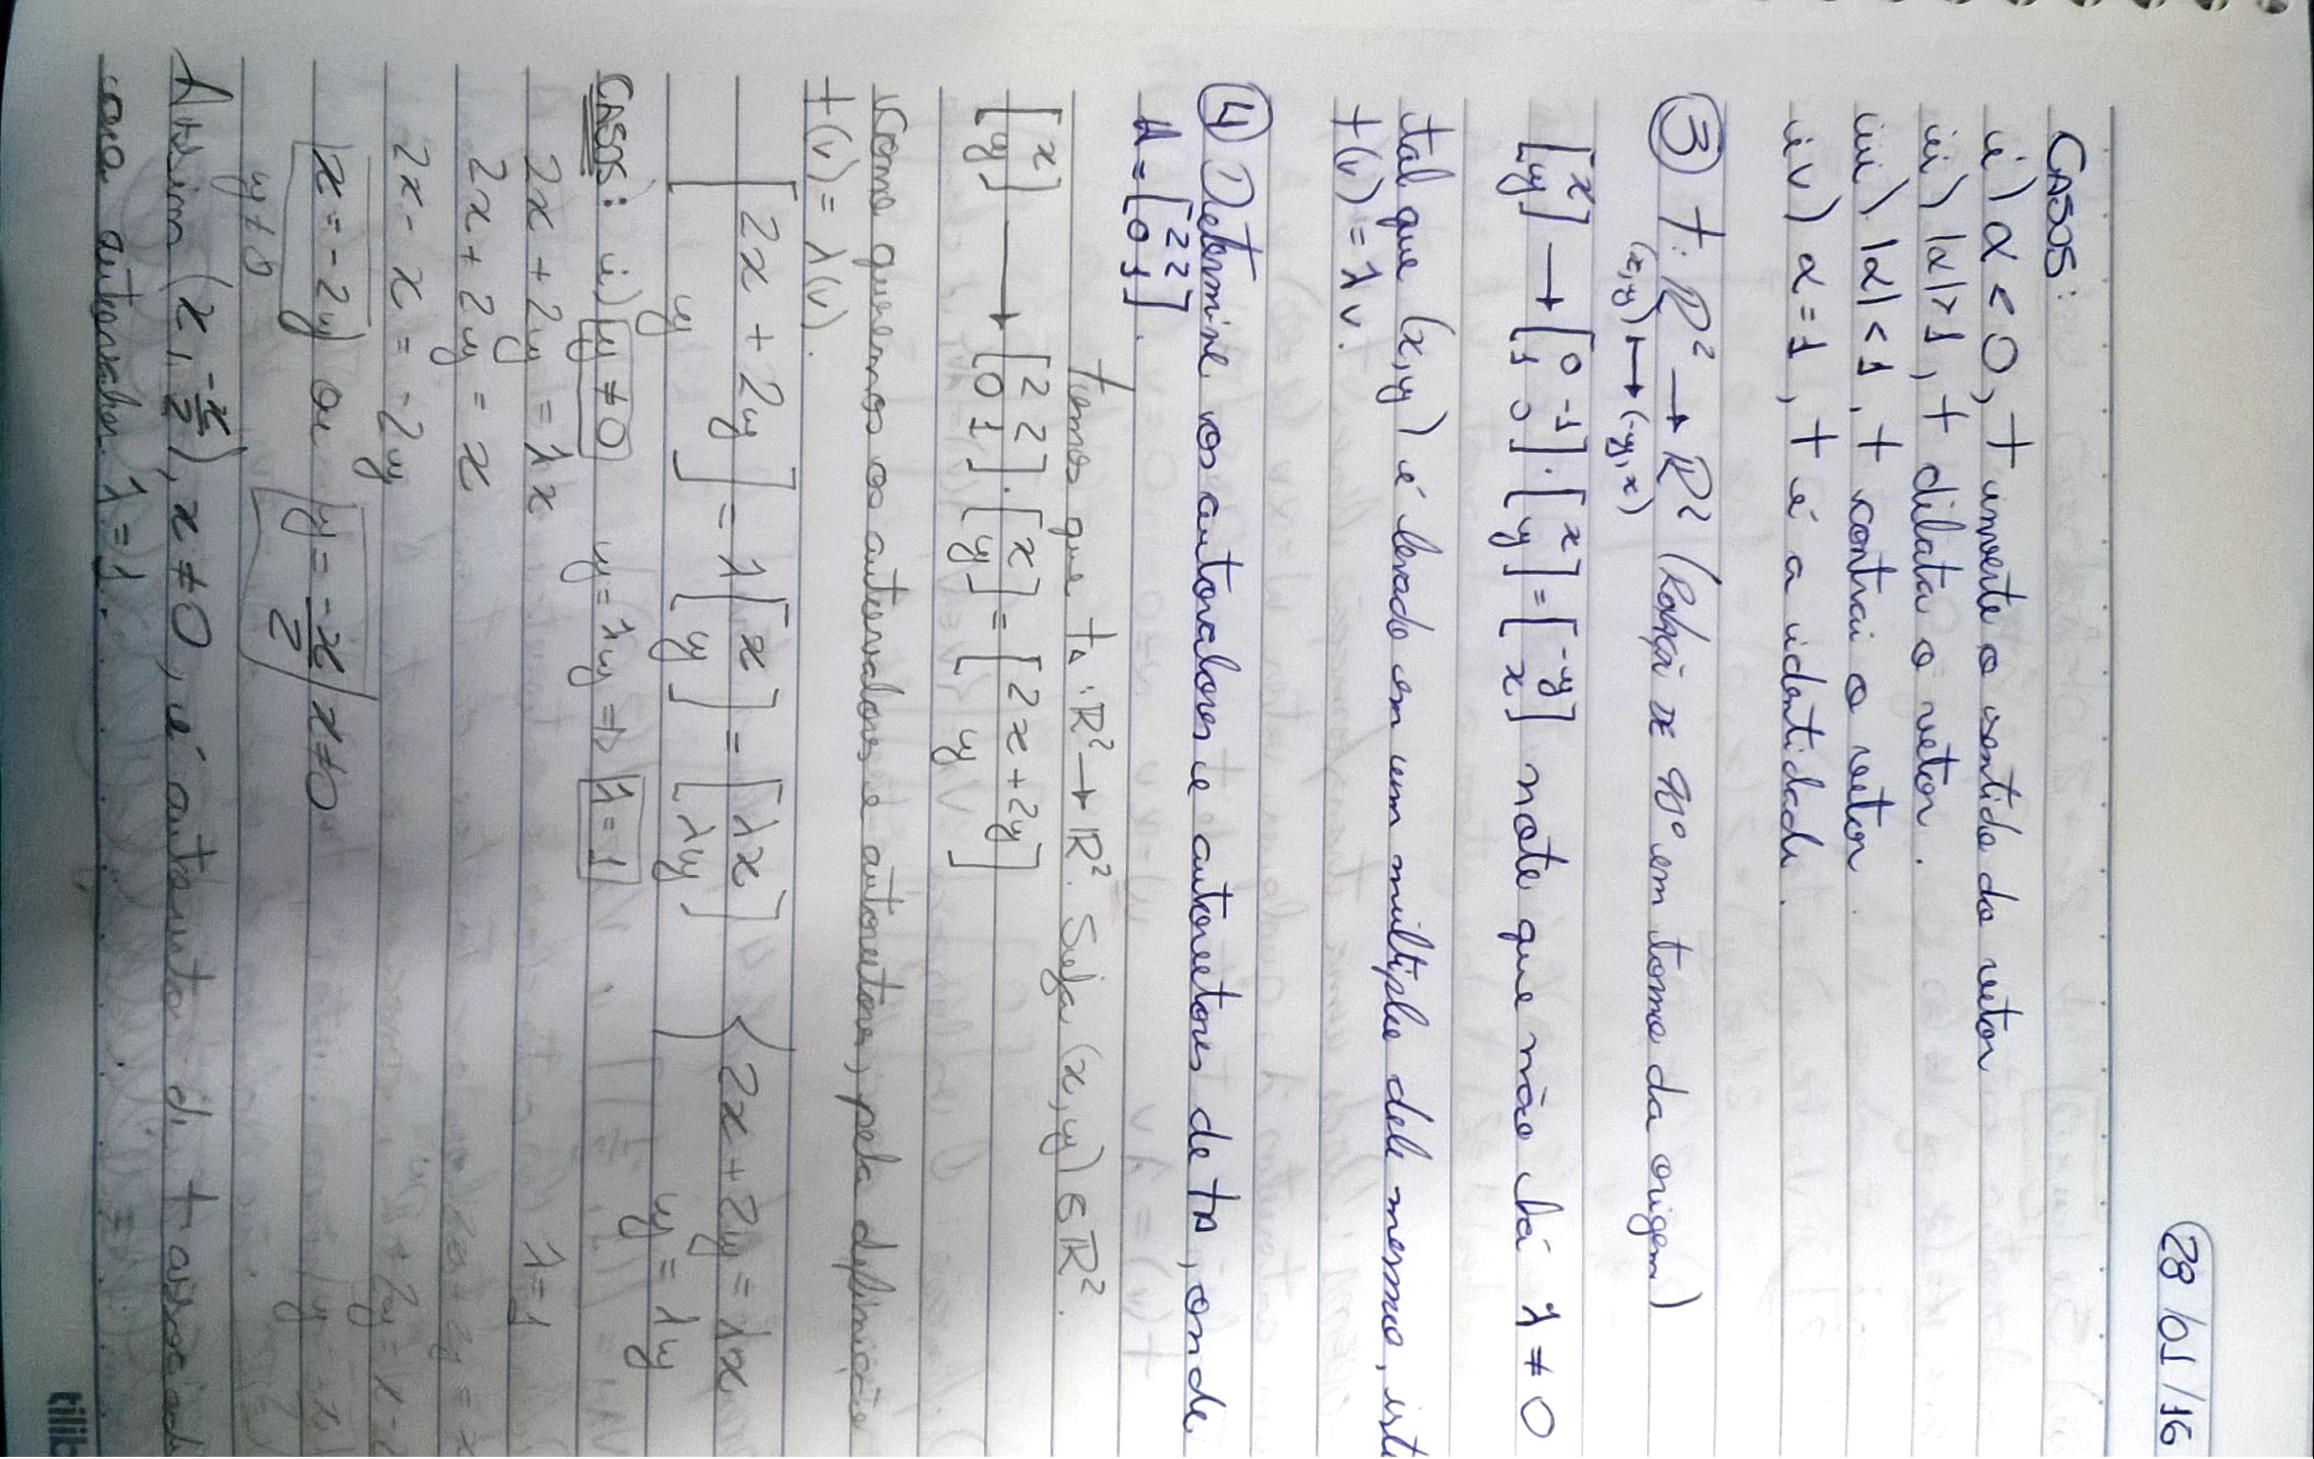 28/01/16
CASOS:
i) α < 0, T inverte o sentido do vetor
ii) |α|>1, T dilata o vetor.
iii) |α|<1, T contrai o vetor.
iv) α=1, T é a identidade.
③ T: ℝ² → ℝ² (Rotação DE 90° em torno da origem)
(x,y) ↦ (-y,x)
[x y] → [0 -1 1 0]·[x y] = [-y x] note que não há λ ≠ 0
tal que (x,y) é levado em um múltiplo dele mesmo, isto
T(v) = λv.
④ Determine os autovalores e autovetores de TA, onde
A = [2 2 0 1].
Temos que TA: ℝ² → ℝ². Seja (x,y) ∈ ℝ².
[x y] → [2 2 0 1]·[x y] = [2x+2y y]
Como queremos os autovalores e autovetores, pela definição
T(v) = λ(v).
[2x + 2y y] = λ[x y] = [λx λy] { 2x+2y = λx
y = λy
CASOS: i) y ≠ 0 y = λy ⇒ λ = 1
2x + 2y = λx λ=1
2x + 2y = x 2x+2y = x
2x - x = -2y 2y = x-2
x = -2y ou y = -x/2 x≠0
y≠0
Assim (x, -x/2), x ≠ 0, é autoveto de T associado
ao autovalor λ = 1.
tilib